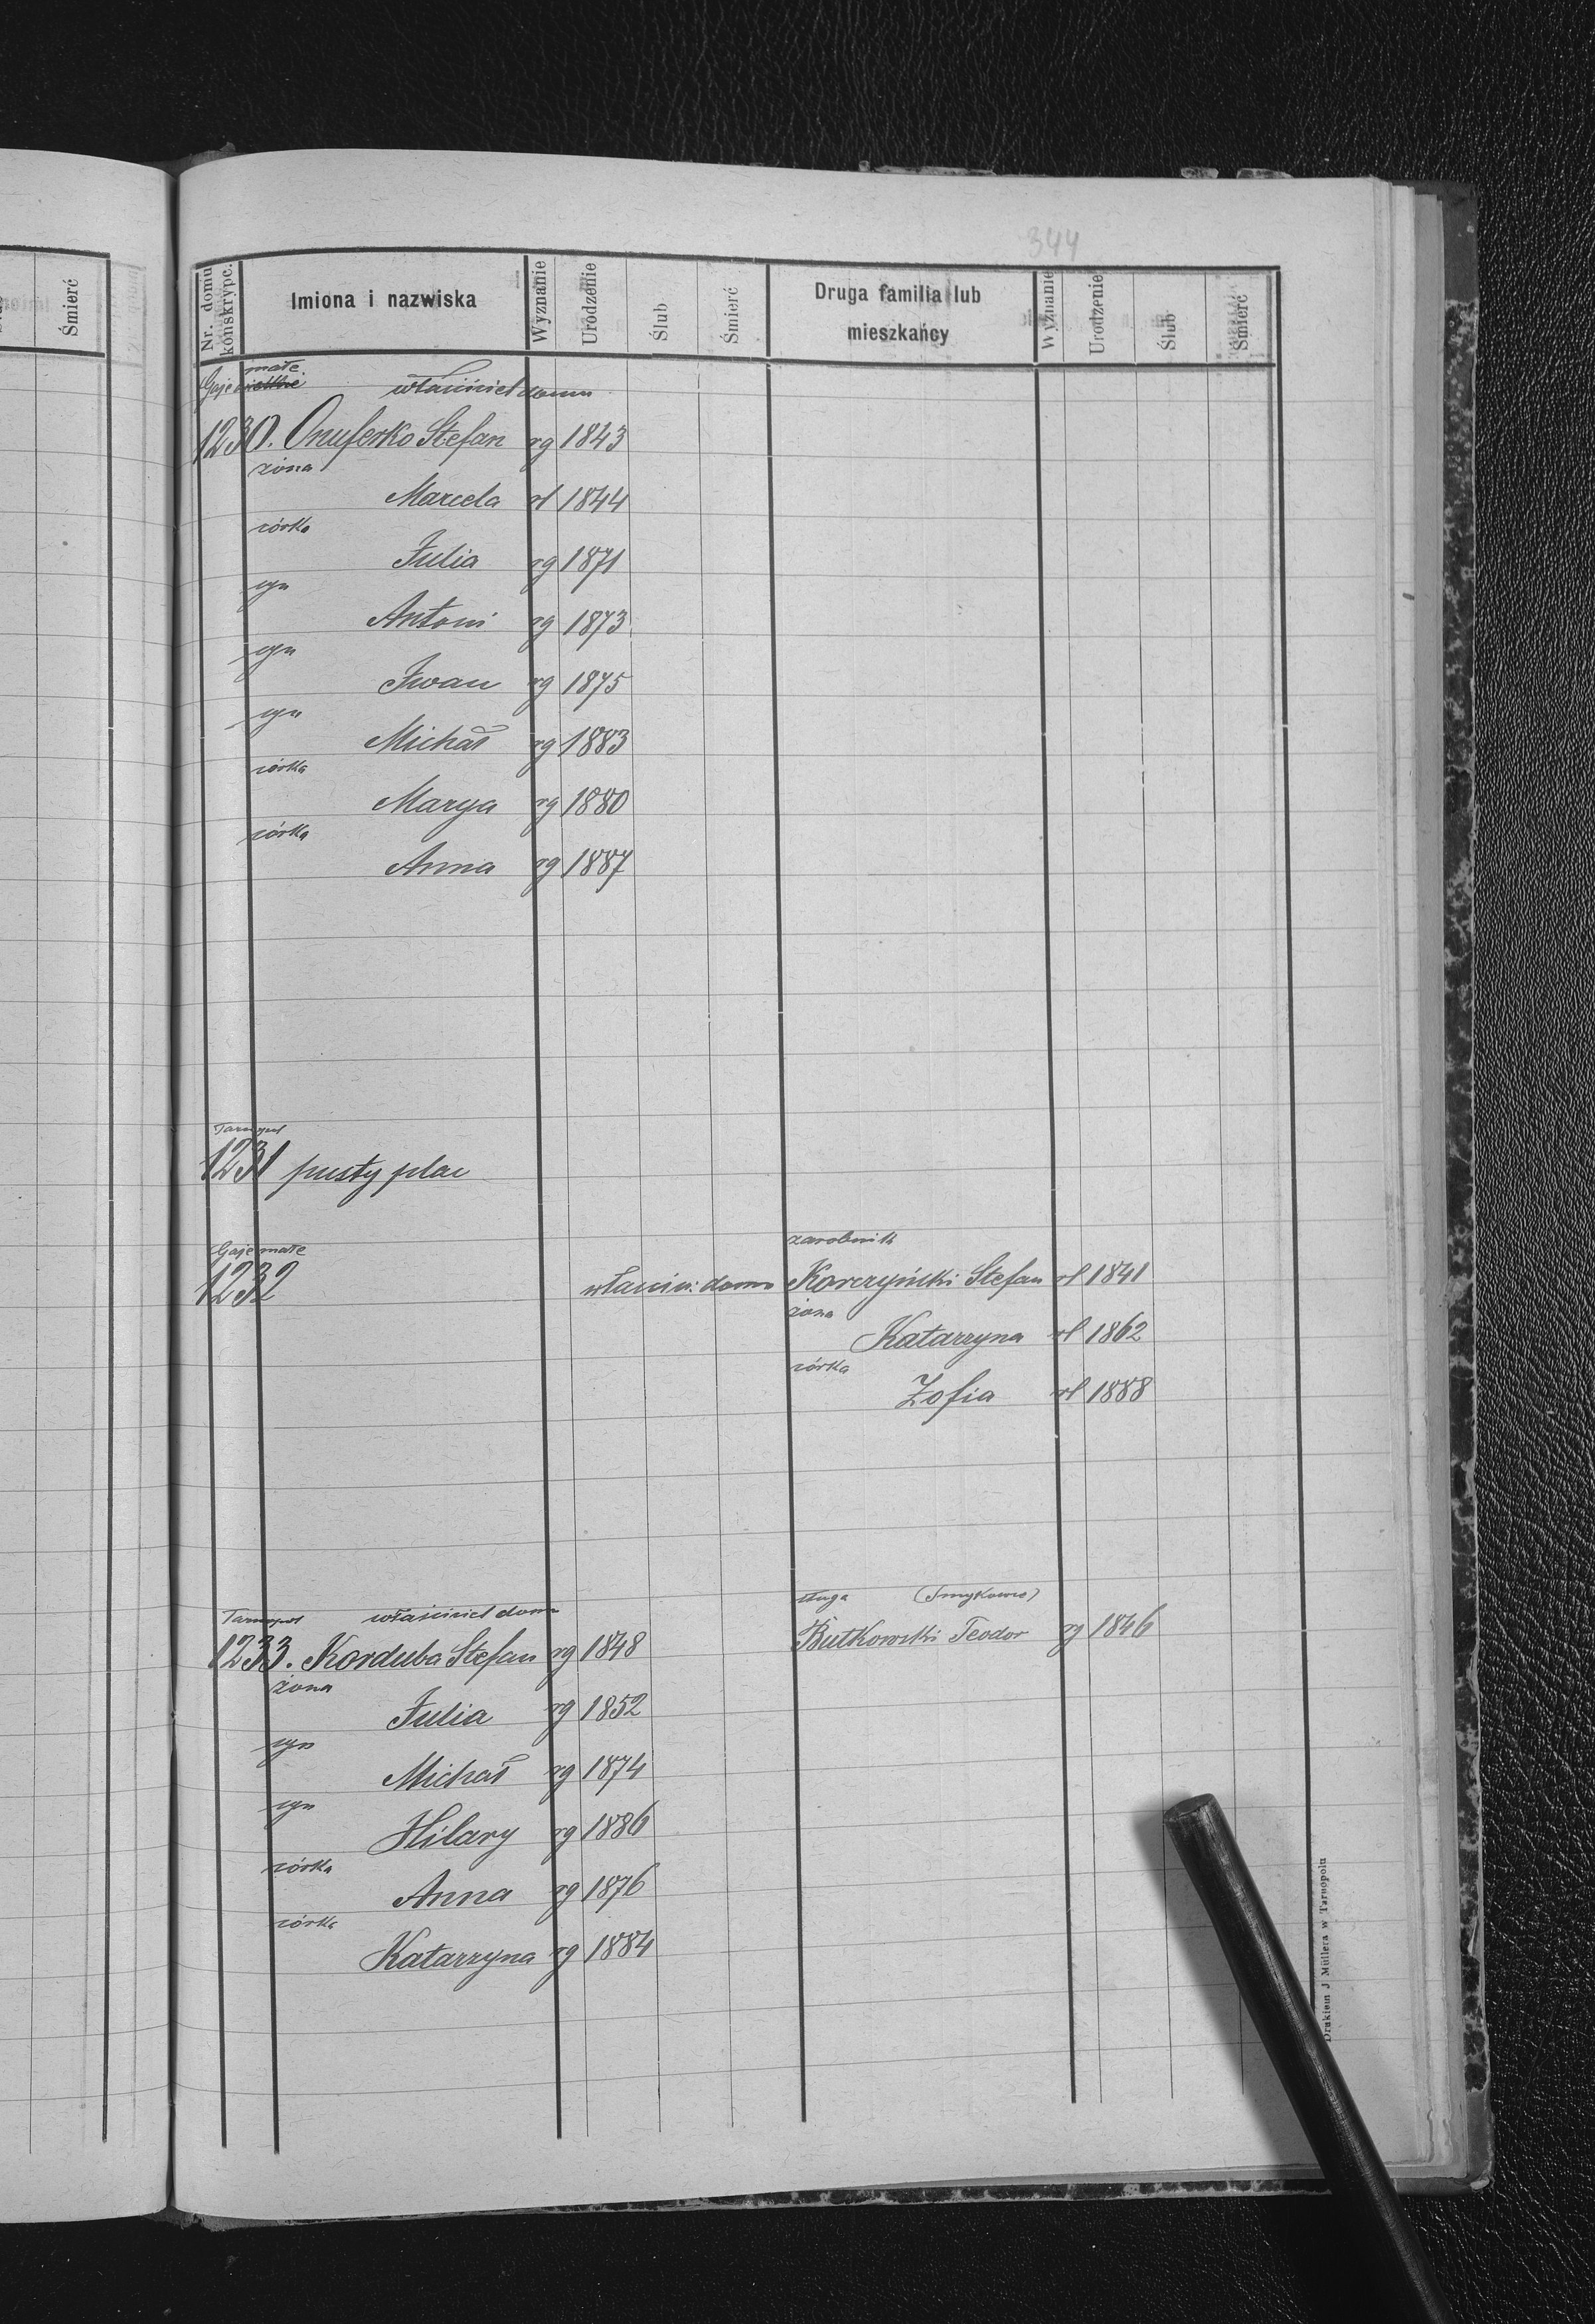 344
Śmierć
Nr. domu konskrypc.
Imiona i nazwiska
Wyznanie
Urodzenie
Ślub
Śmierć
Druga familia lub mieszkańcy
Wyznanie
Urodzenie
Ślub
Śmierć
małe
Gaje wielkie właściciel domu
1230. Onuferko Stefan rg 1843
żona
Marcela rł 1844
córka
Julia rg 1871
syn
Antoni rg 1873
syn
Iwan rg 1875
syn
Michał rg 1883
córka
Marya rg 1880
córka
Anna rg 1887
Tarnopol
1231 pusty plac
Gaje małe zarobnik
1232 właścic: domu Korczyński Stefan rł 1841
żona
Katarzyna rł 1862
córka
Zofia rł 1888
Tarnopol właściciel domu sługa (Smykowce)
1233. Korduba Stefan rg 1848 Butkowski Teodor rg 1846
żona
Julia rg 1852
syn
Michał rg 1874
syn
Hilary rg 1886
córka
Anna rg 1876
córka
Katarzyna rg 1884
Drukiem J Müllera w Tarnopolu